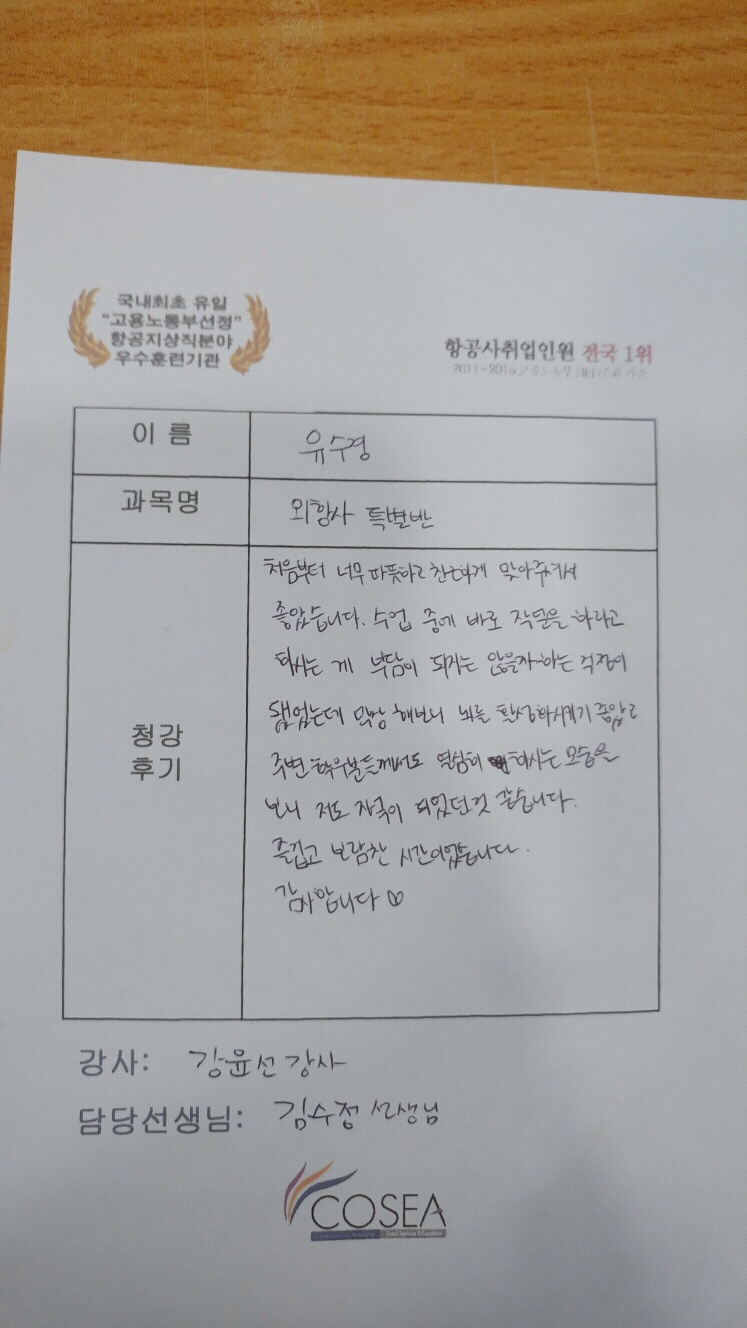 국내최초 유일
"고용노동부선정"
항공지상직분야
우수훈련기관
항공사취업인원 전국 1위
이 름
유수경
과목명
외항사 특별반
청강
후기
처음부터 너무 따뜻하고 친절하게 맞아주셔서
좋았습니다. 수업 중에 바로 작문을 하라고
하시는 게 부담이 되지는 않을까하는 걱정이
됐었는데 막상 해보니 뇌를 활성화시키기 좋았고
주변 학우분들께서도 열심히 하시는 모습을
보니 저도 자극이 되었던것 같습니다.
즐겁고 보람찬 시간이었습니다.
감사합니다 ♡
강사: 강윤선 강사
담당선생님: 김수정 선생님
COSEA
Total Service Education